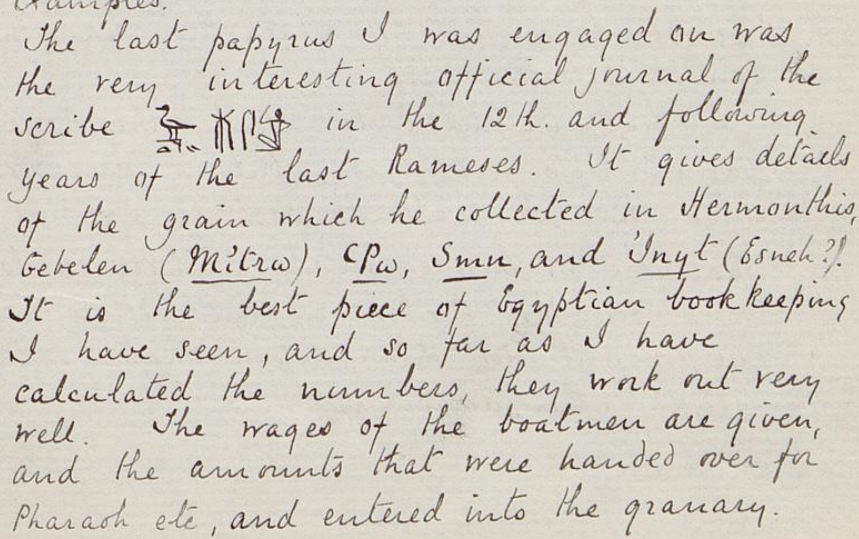 Examples.
The last papyrus I was engaged on was
the very interesting official journal of the
scribe in the 12th. and following
years of the last Rameses. It gives details
of the grain which he collected in Hermonthis,
Gebelen (Mìtrw), ꜥPw, Smn, and 'Inyt (Esneh?).
It is the best piece of Egyptian bookkeeping
I have seen, and so far as I have
calculated the numbers, they work out very
well. The wages of the boatmen are given,
and the amounts that were handed over for
Pharaoh etc, and entered into the granary.